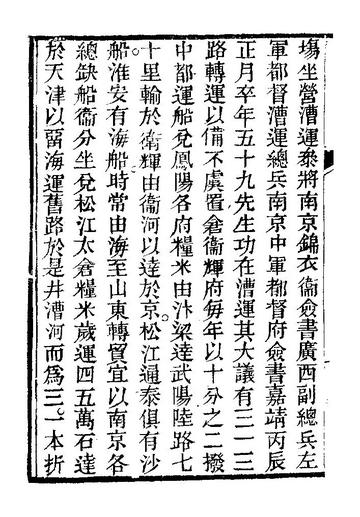 塲坐營漕運叅將南京錦衣衞僉書廣西副總兵左
軍都督漕運總兵南京中軍都督府僉書嘉靖丙辰
正月卒年五十九先生功在漕運其大議有三一三
路轉運以備不虞置倉衞輝府每年以十分之二撥
中都運船兌鳳陽各府糧米由汴梁達武陽陸路七
十里輸於衞輝由衞河以達於京。松江通泰俱有沙
船淮安有海船時常由海至山東轉貿宜以南京各
總缺船衞分坐兌松江太倉糧米歲運四五萬石達
於天津以留海運舊路於是井漕河而爲三。一本折